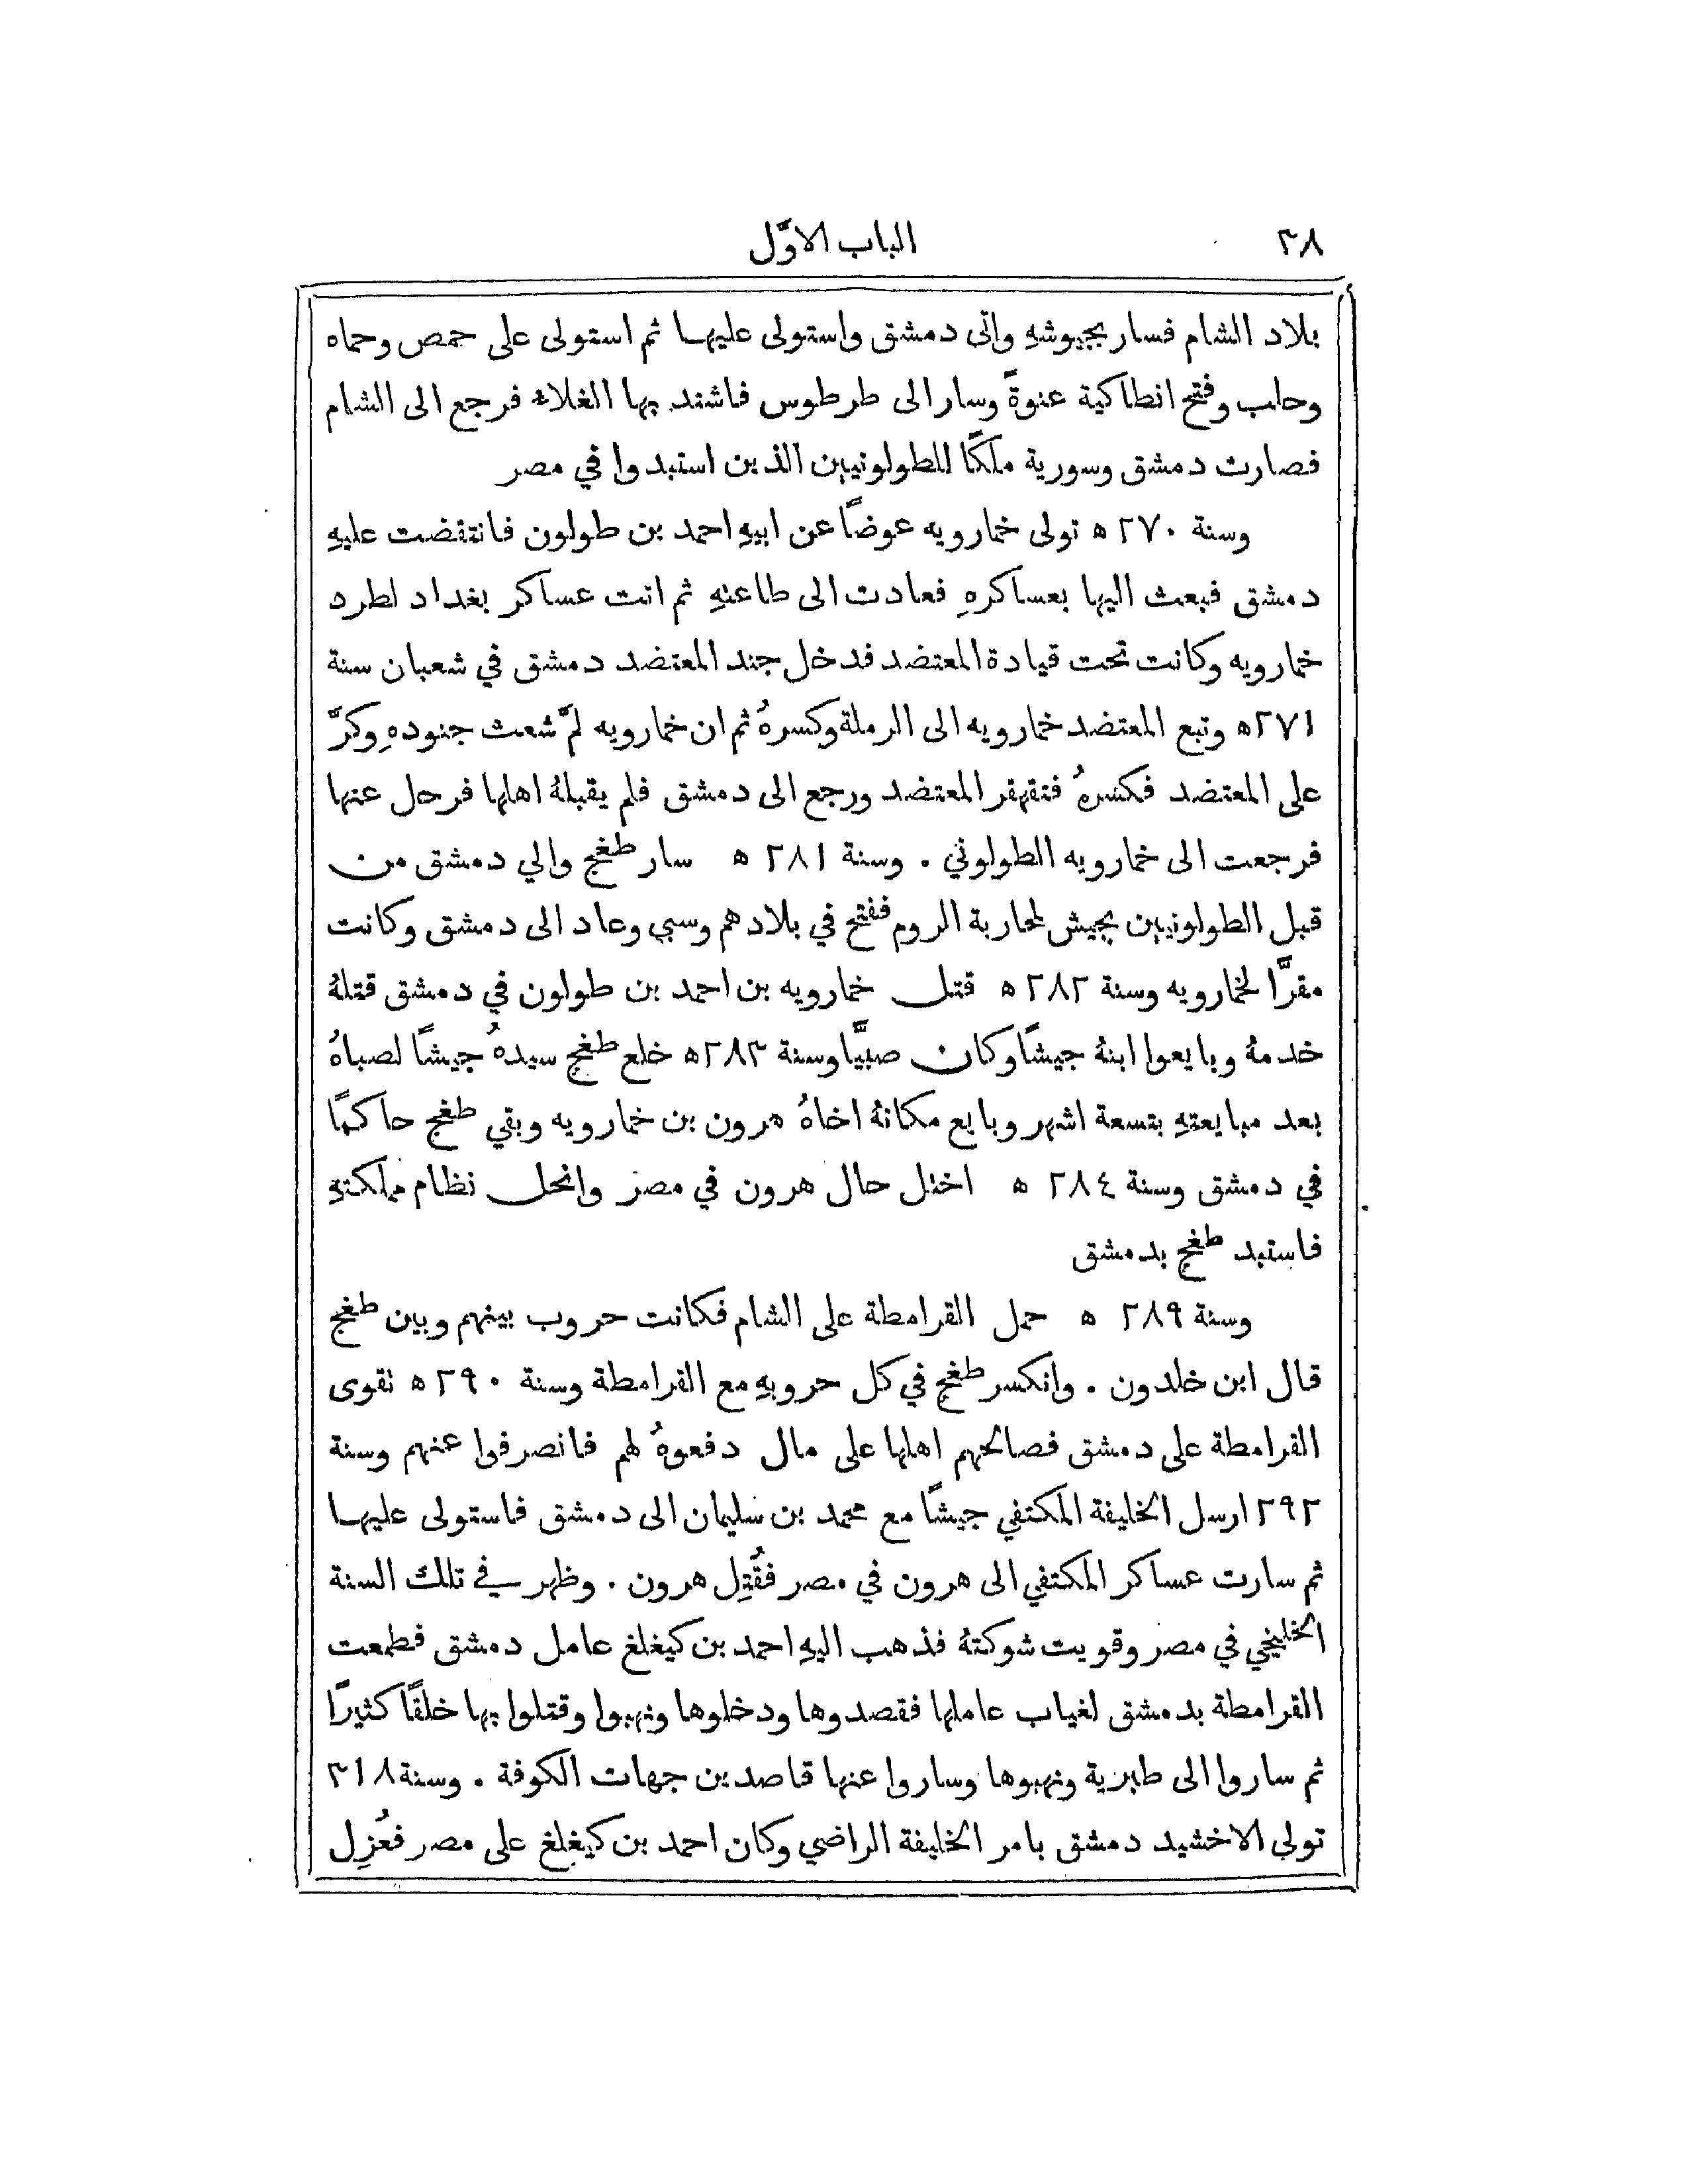 ٣٨
الباب الاوَّل
بلاد الشام فسار بجيوشهِ واتى دمشق واستولى عليها ثم استولى على حمص وحماه
وحلب وفتح انطاكية عنوةً وسار الى طرطوس فاشتد بها الغلاء فرجع الى الشام
فصارت دمشق وسورية ملكًا للطولونيين الذين استبدوا في مصر
وسنة ٢٧٠ ه تولى خمارويه عوضًا عن ابيهِ احمد بن طولون فانتقضت عليهِ
دمشق فبعث اليها بعساكرهِ فعادت الى طاعتهِ ثم اتت عساكر بغداد لطرد
خمارويه وكانت تحت قيادة المعتضد فدخل جند المعتضد دمشق في شعبان سنة
٢٧١ه وتبع المعتضد خمارويه الى الرملة وكسرهُ ثم ان خمارويه لمَّ شعث جنودهِ وكرَّ
على المعتضد فكسرهُ فتقهقر المعتضد ورجع الى دمشق فلم يقبلهُ اهلها فرحل عنها
فرجعت الى خمارويه الطولوني . وسنة ٢٨١ ه سار طغج والي دمشق من
قبل الطولونيين بجيش لمحاربة الروم ففتح في بلادهم وسبى وعاد الى دمشق وكانت
مقرًّا لخمارويه وسنة ٢٨٢ ه قتل خمارويه بن احمد بن طولون في دمشق قتلهُ
خدمهُ وبايعوا ابنهُ جيشًا وكان صبيًّا وسنة ٢٨٣ه خلع طغج سيدهُ جيشًا لصباهُ
بعد مبايعتهِ بتسعة اشهر وبايع مكانهُ اخاهُ هرون بن خمارويه وبقي طغج حاكمًا
في دمشق وسنة ٢٨٤ ه اختل حال هرون في مصر وانحل نظام مملكتهِ
فاستبد طغج بدمشق
وسنة ٢٨٩ ه حمل القرامطة على الشام فكانت حروب بينهم وبين طغج
قال ابن خلدون . وانكسر طغج في كل حروبهِ مع القرامطة وسنة ٢٩٠ ه تقوى
القرامطة على دمشق فصالحهم اهلها على مال دفعوهُ لهم فانصرفوا عنهم وسنة
٢٩٢ ارسل الخليفة المكتفي جيشًا مع محمد بن سليمان الى دمشق فاستولى عليها
ثم سارت عساكر المكتفي الى هرون في مصر فقُتِل هرون . وظهر في تلك السنة
الخليجي في مصر وقويت شوكتهُ فذهب اليهِ احمد بن كيغلغ عامل دمشق فطمعت
القرامطة بدمشق لغياب عاملها فقصدوها ودخلوها ونهبوا وقتلوا بها خلقًا كثيرًا
ثم ساروا الى طبرية ونهبوها وساروا عنها قاصدين جهات الكوفة . وسنة ٣١٨
تولى الاخشيد دمشق بامر الخليفة الراضي وكان احمد بن كيغلغ على مصر فعُزِل